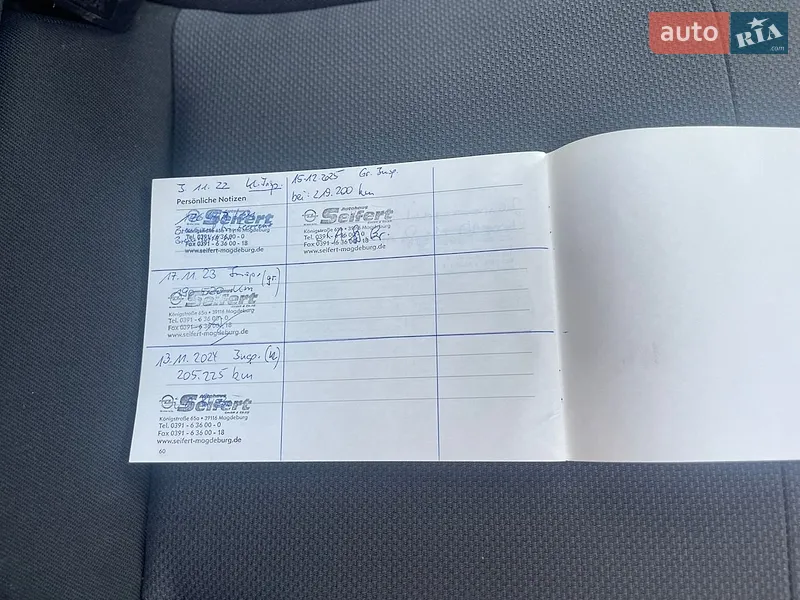 auto RIA .com
3 11.22 kl. Insp.
Persönliche Notizen
Seifert
Tel. 0391 - 6 36 00 - 0
Fax 0391 - 6 36 00 - 18
www.seifert-magdeburg.de
17.11.23 Insp. (gr.)
km
Seifert
Königstraße 65a • 39116 Magdeburg
Tel. 0391 - 6 36 00 - 0
Fax 0391 - 6 36 00 - 18
www.seifert-magdeburg.de
13.11.2024 Insp. (kl)
205.225 km
Autohaus
Seifert
Königstraße 65a • 39116 Magdeburg
Tel. 0391 - 6 36 00 - 0
Fax 0391 - 6 36 00 - 18
www.seifert-magdeburg.de
60
15.12.2025 Gr. Insp.
bei: 219.200 km
Autohaus
Seifert
Königstraße 65a • 39116 Magdeburg
Tel. 0391 - 6 36 00 - 0
Fax 0391 - 6 36 00 - 18
www.seifert-magdeburg.de